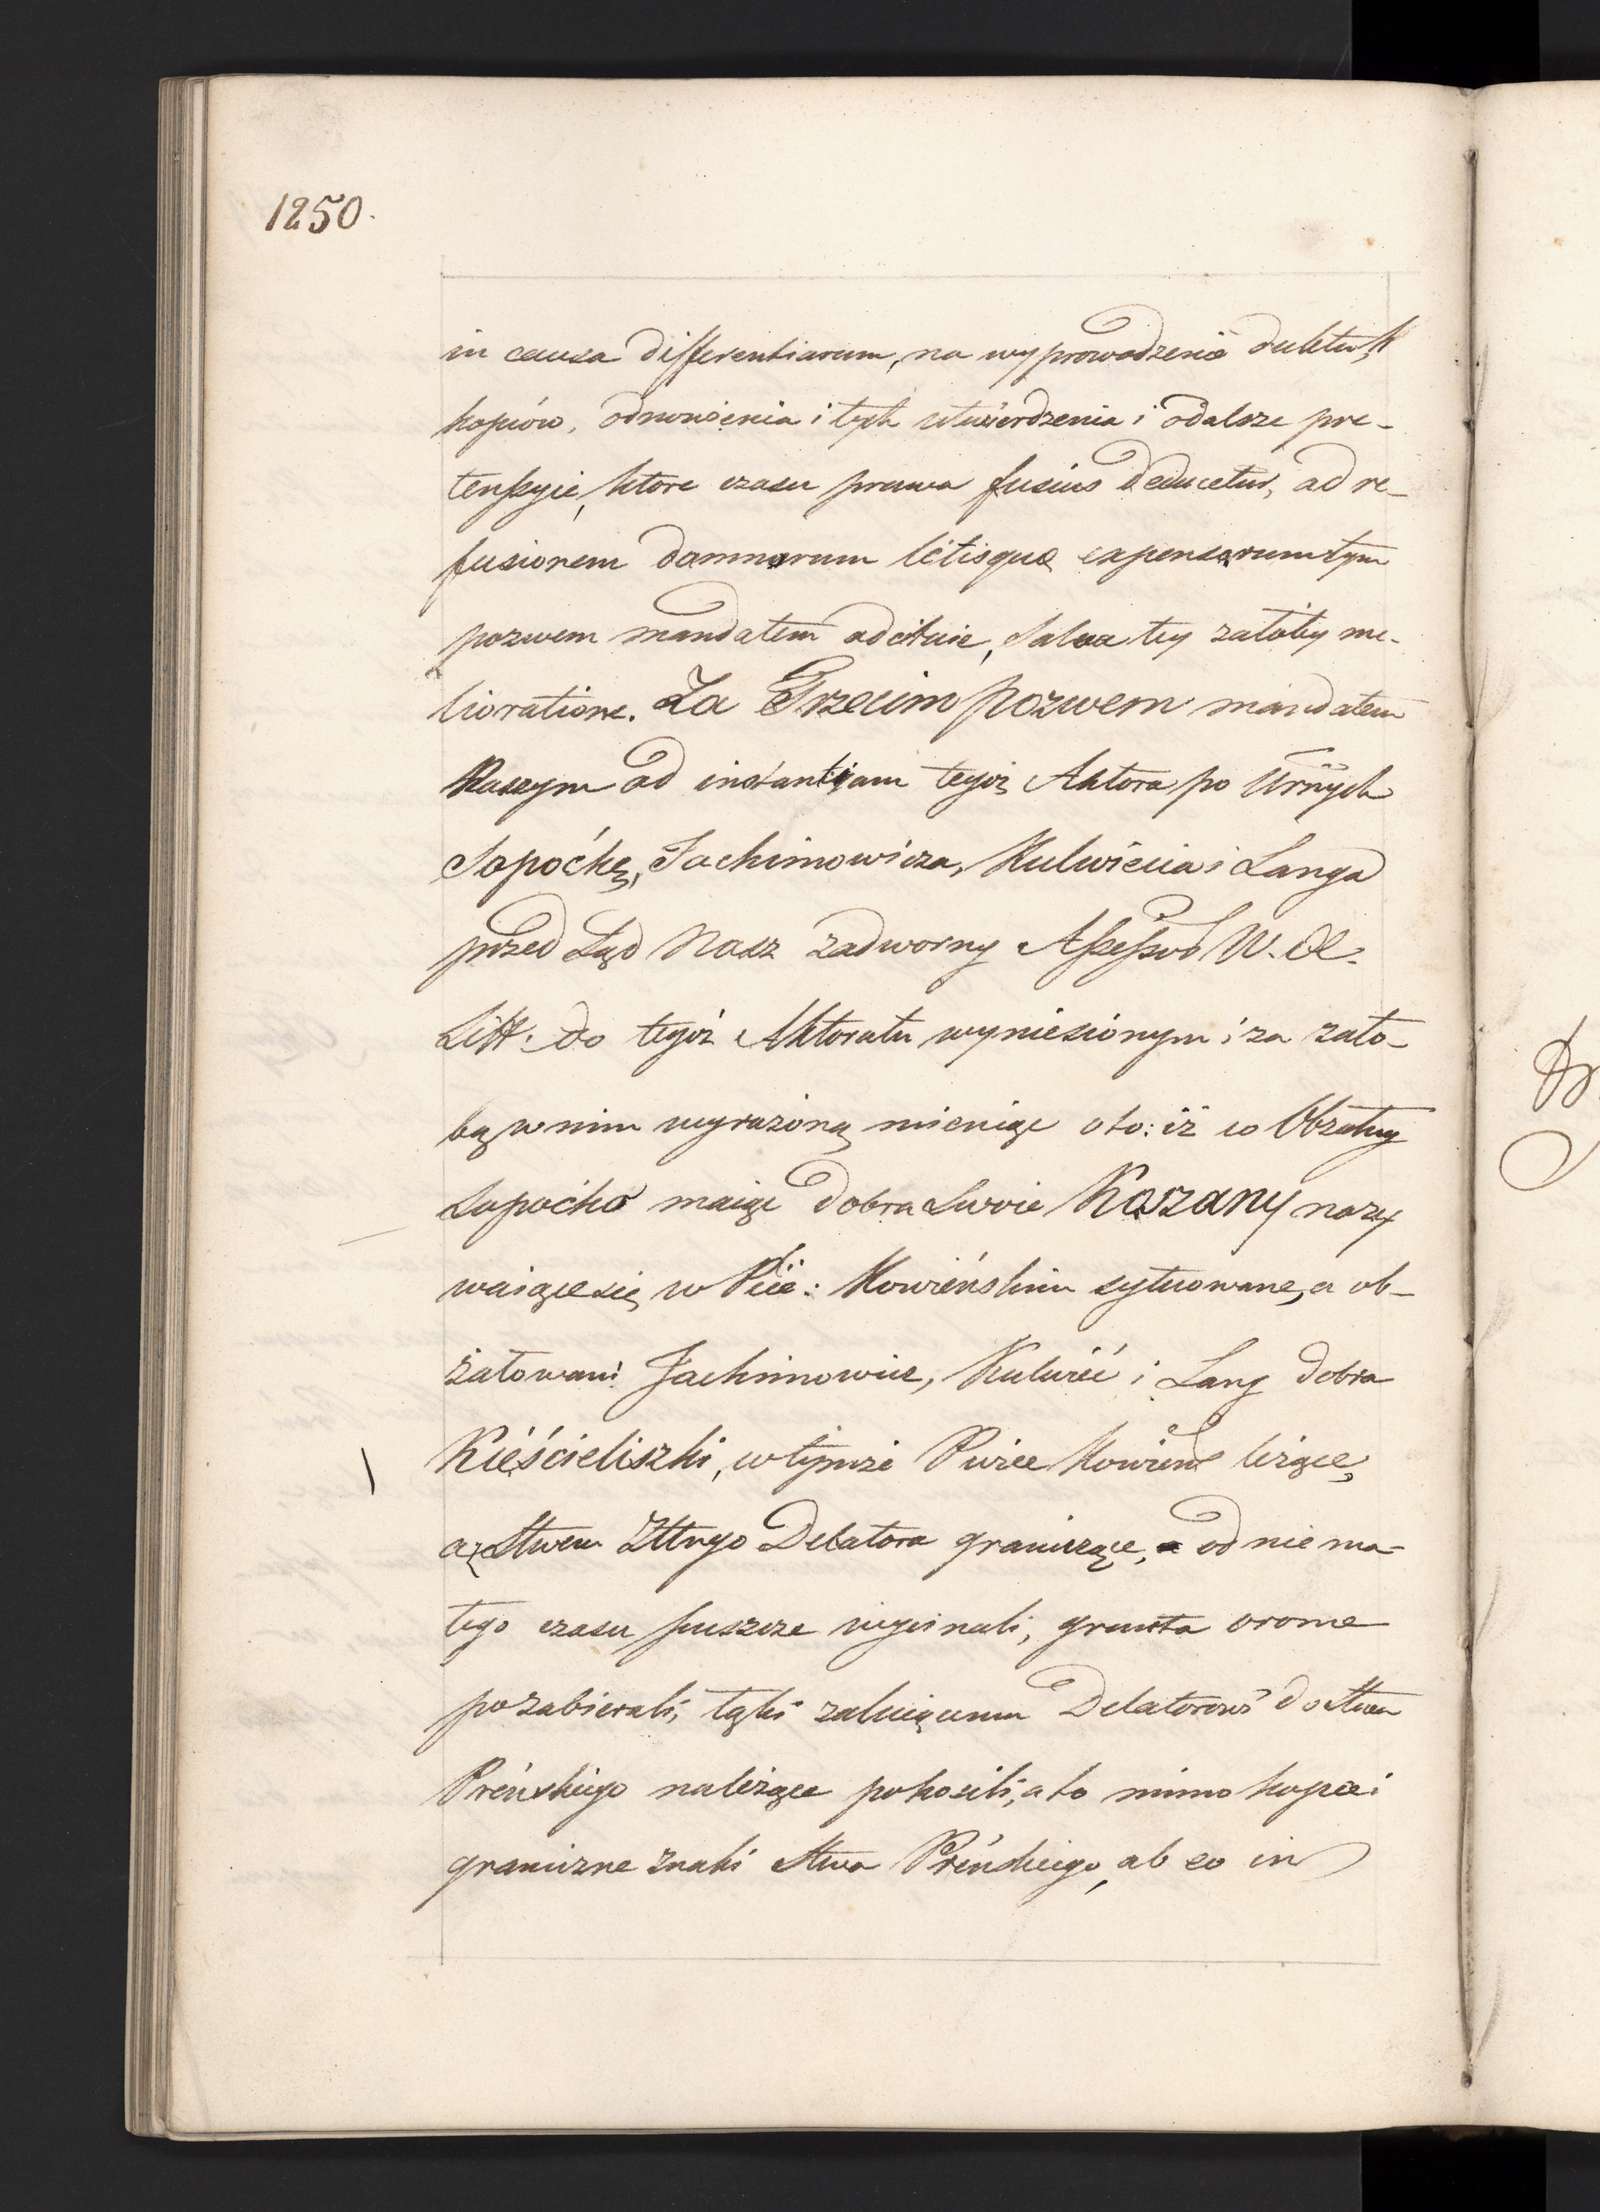 1250.
in causa differentiarum, na wyprowadzenie duktu, k
kopców, odnowienia i tych utwierdzenia i odalsze pre-
tensyie, ktore czasu prawa fusius deducetur, ad re-
fusionem damnorum litisque expensarum tym
pozwem mandatem adcituie, Salva tey załoby me-
lioratione. Za Trzecim pozwem mandatem
Naszym ad instantiam tegoż Aktora po Urńych
Sapoćkę, Jachimowicza, Kulwiecia i Langa
przed Sąd Nasz zadworny Assessor W. X.
Litt. do tegoż Aktoratu wyniesionym i za zało-
bą w nim wyrażoną mieniąc oto: iż co Obżałny
Sapoćko maiąc dobra Swoie Koszany nazy
waiące się w Pcie: Kowieńskim sytuowane, a ob-
żałowani Jachimowicz, Kulwieć i Lang dobra
Kieścieliszki, w tymże Pwiee Kowieńs leżące,
a z Stwem Żłłngo Delatora graniczące, a od nie ma-
łego czasu puszcze wycinali, grunta orome
pozabierali, łąki żaluiącemu Delatorowi do Stwa
Preńskiego należące pokosili, a to mimo kopce i
graniczne znaki Stwa Preńskiego, ab eo in